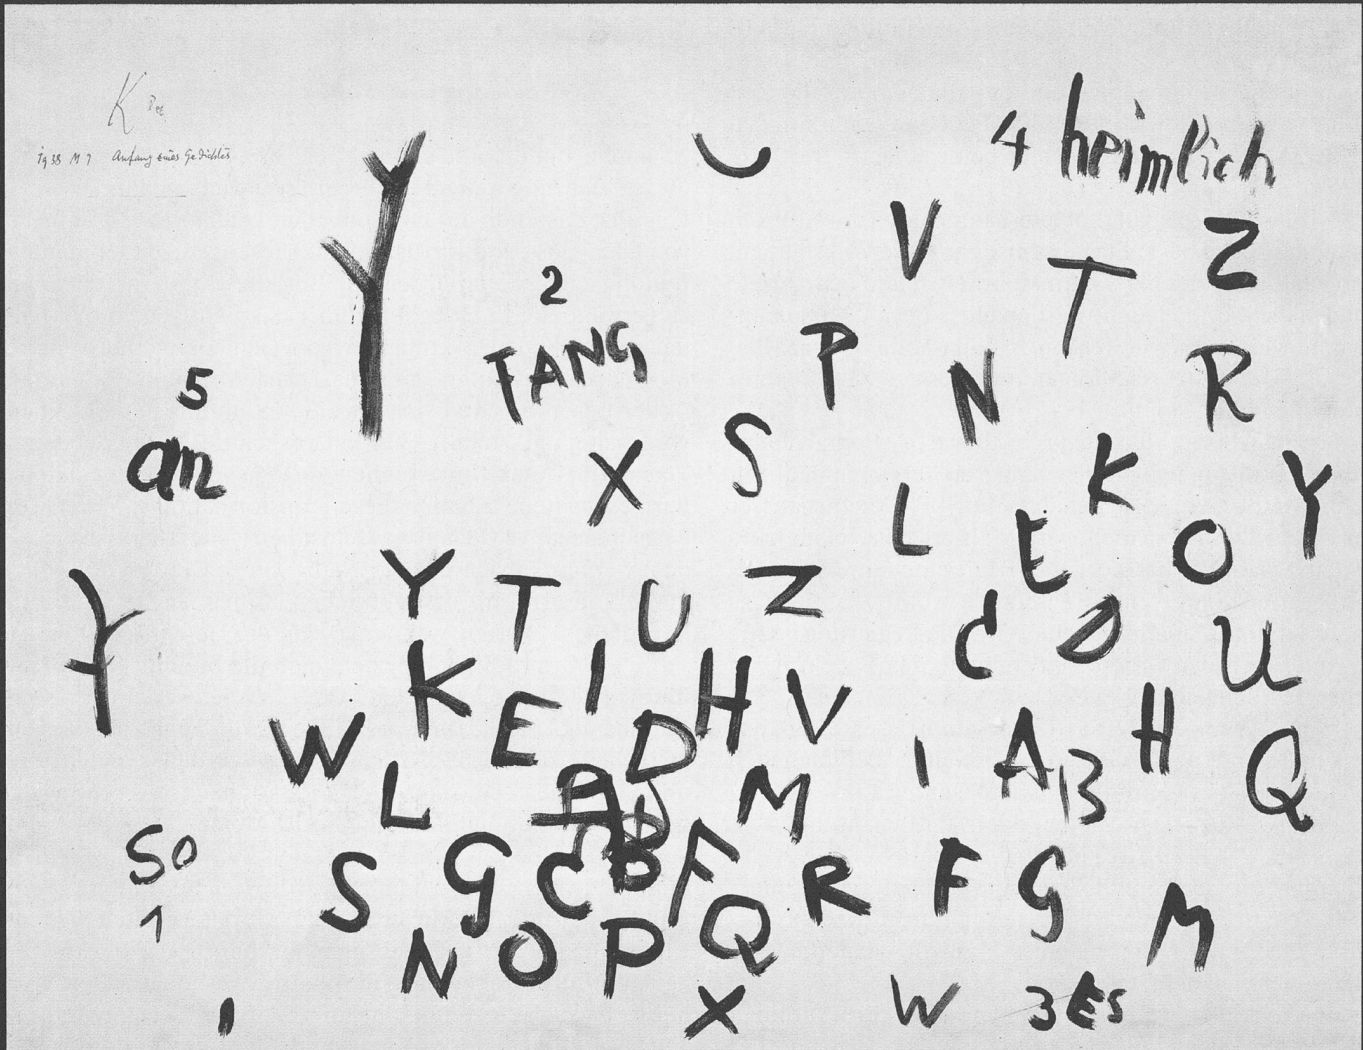 K
1938 M 9 Anfang eines Gedichtes
4 heimlich
V
Z
T
2
FANG
P
N
R
5
an
X
S
K
Y
L
E
O
Y
T
U
Z
C
D
U
K
I
H
V
W
E
D
H
I
A
B
Q
L
A
M
So
1
S
G
C
B
F
R
F
G
M
N
O
P
Q
X
W
3 ES